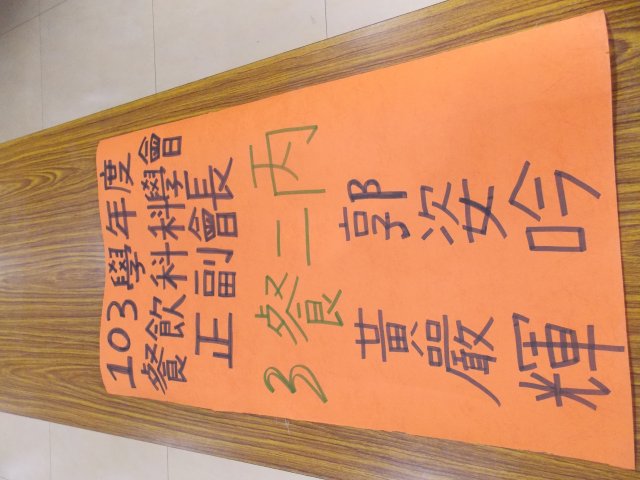 103學年度
餐飲科科學會
正副會長
3餐二丙
郭姿吟
黃嚴輝